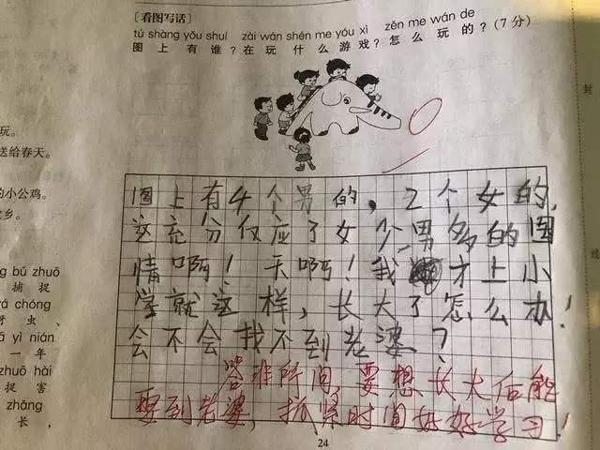 [看图写话]
tú shàng yǒu shuí zài wán shén me yóu xì zěn me wán de
图上有谁？在玩什么游戏？怎么玩的？(7分)
玩。
送给春天。
的小公鸡。
乡。
ng bú zhuō
捕捉
rá chóng
牙虫、
à yì nián
一年
zhuō hài
捉害
zhǎng
长，
0
图上有4个男的，2个女的，
这充分仅应了女少男多的国
情啊！天啊！我才上小
学就这样，长大了怎么办！
会不会找不到老婆？
答非所问，要想长大后能
娶到老婆，抓紧时间好好学习！
24
封
线